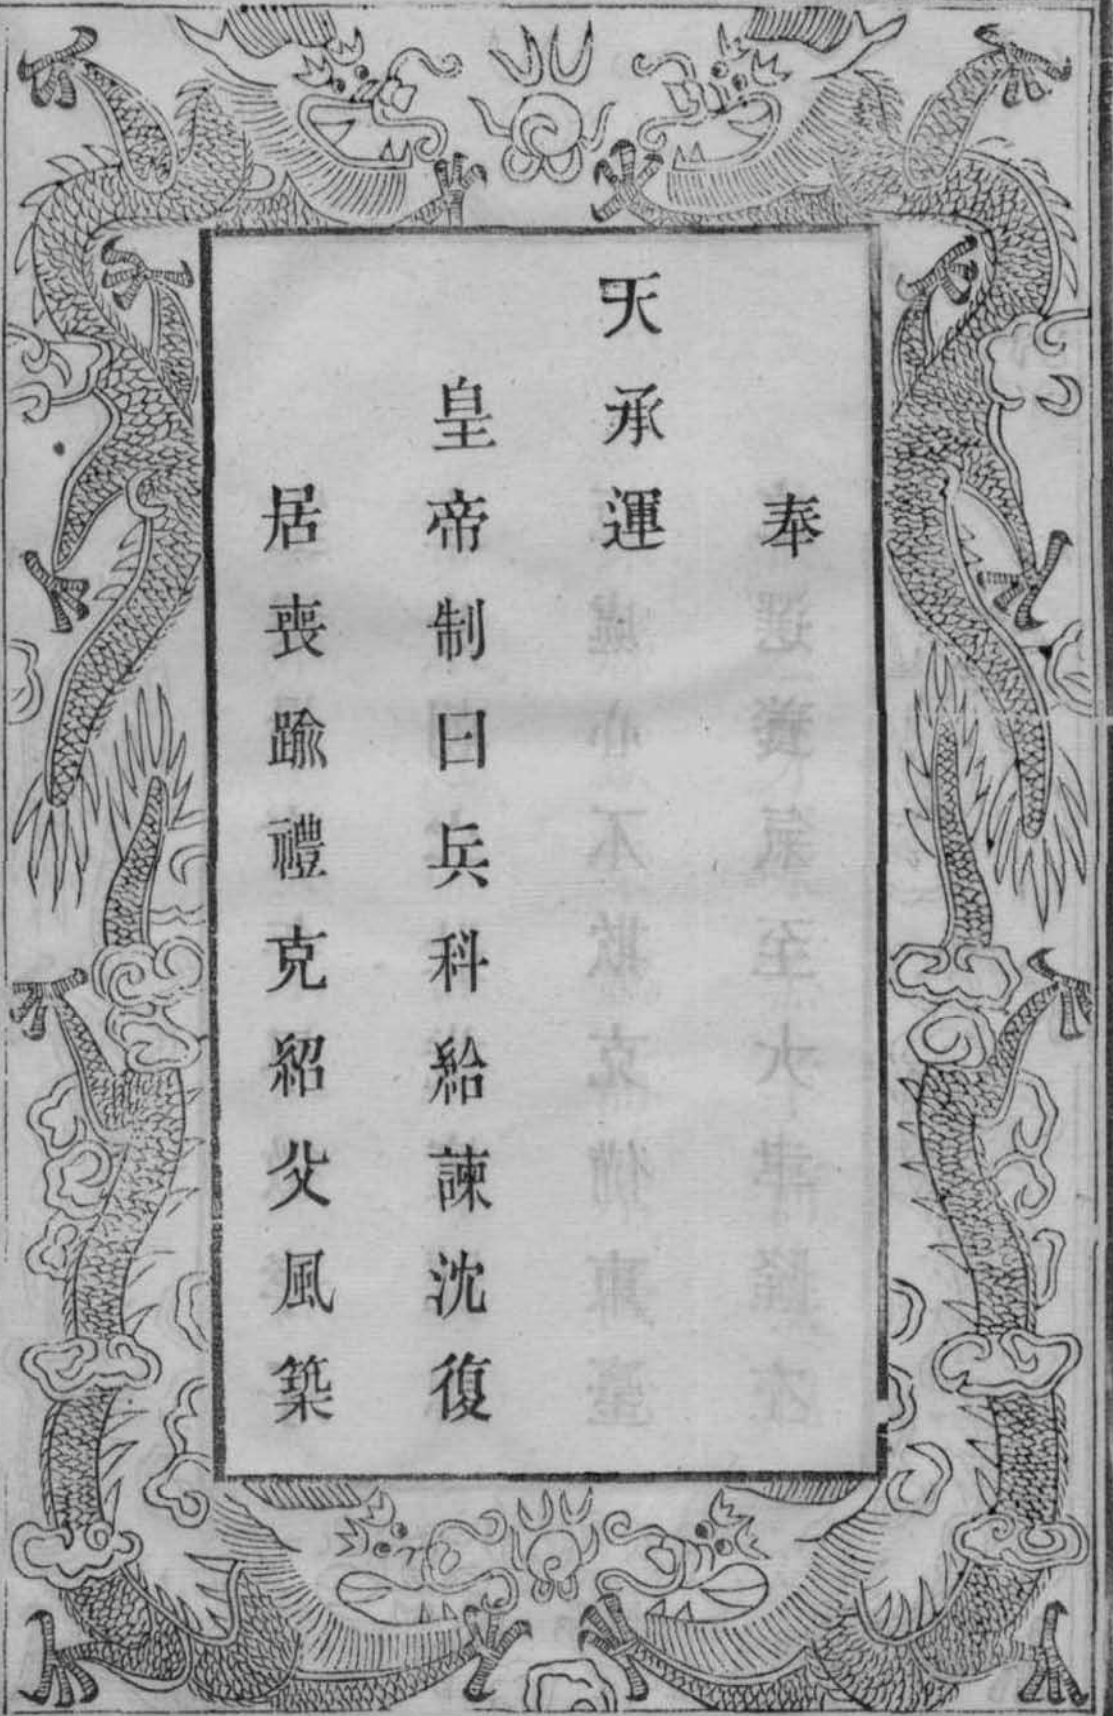 奉
天承運
皇帝制曰兵科給諫沈復
居喪踰禮克紹父風築